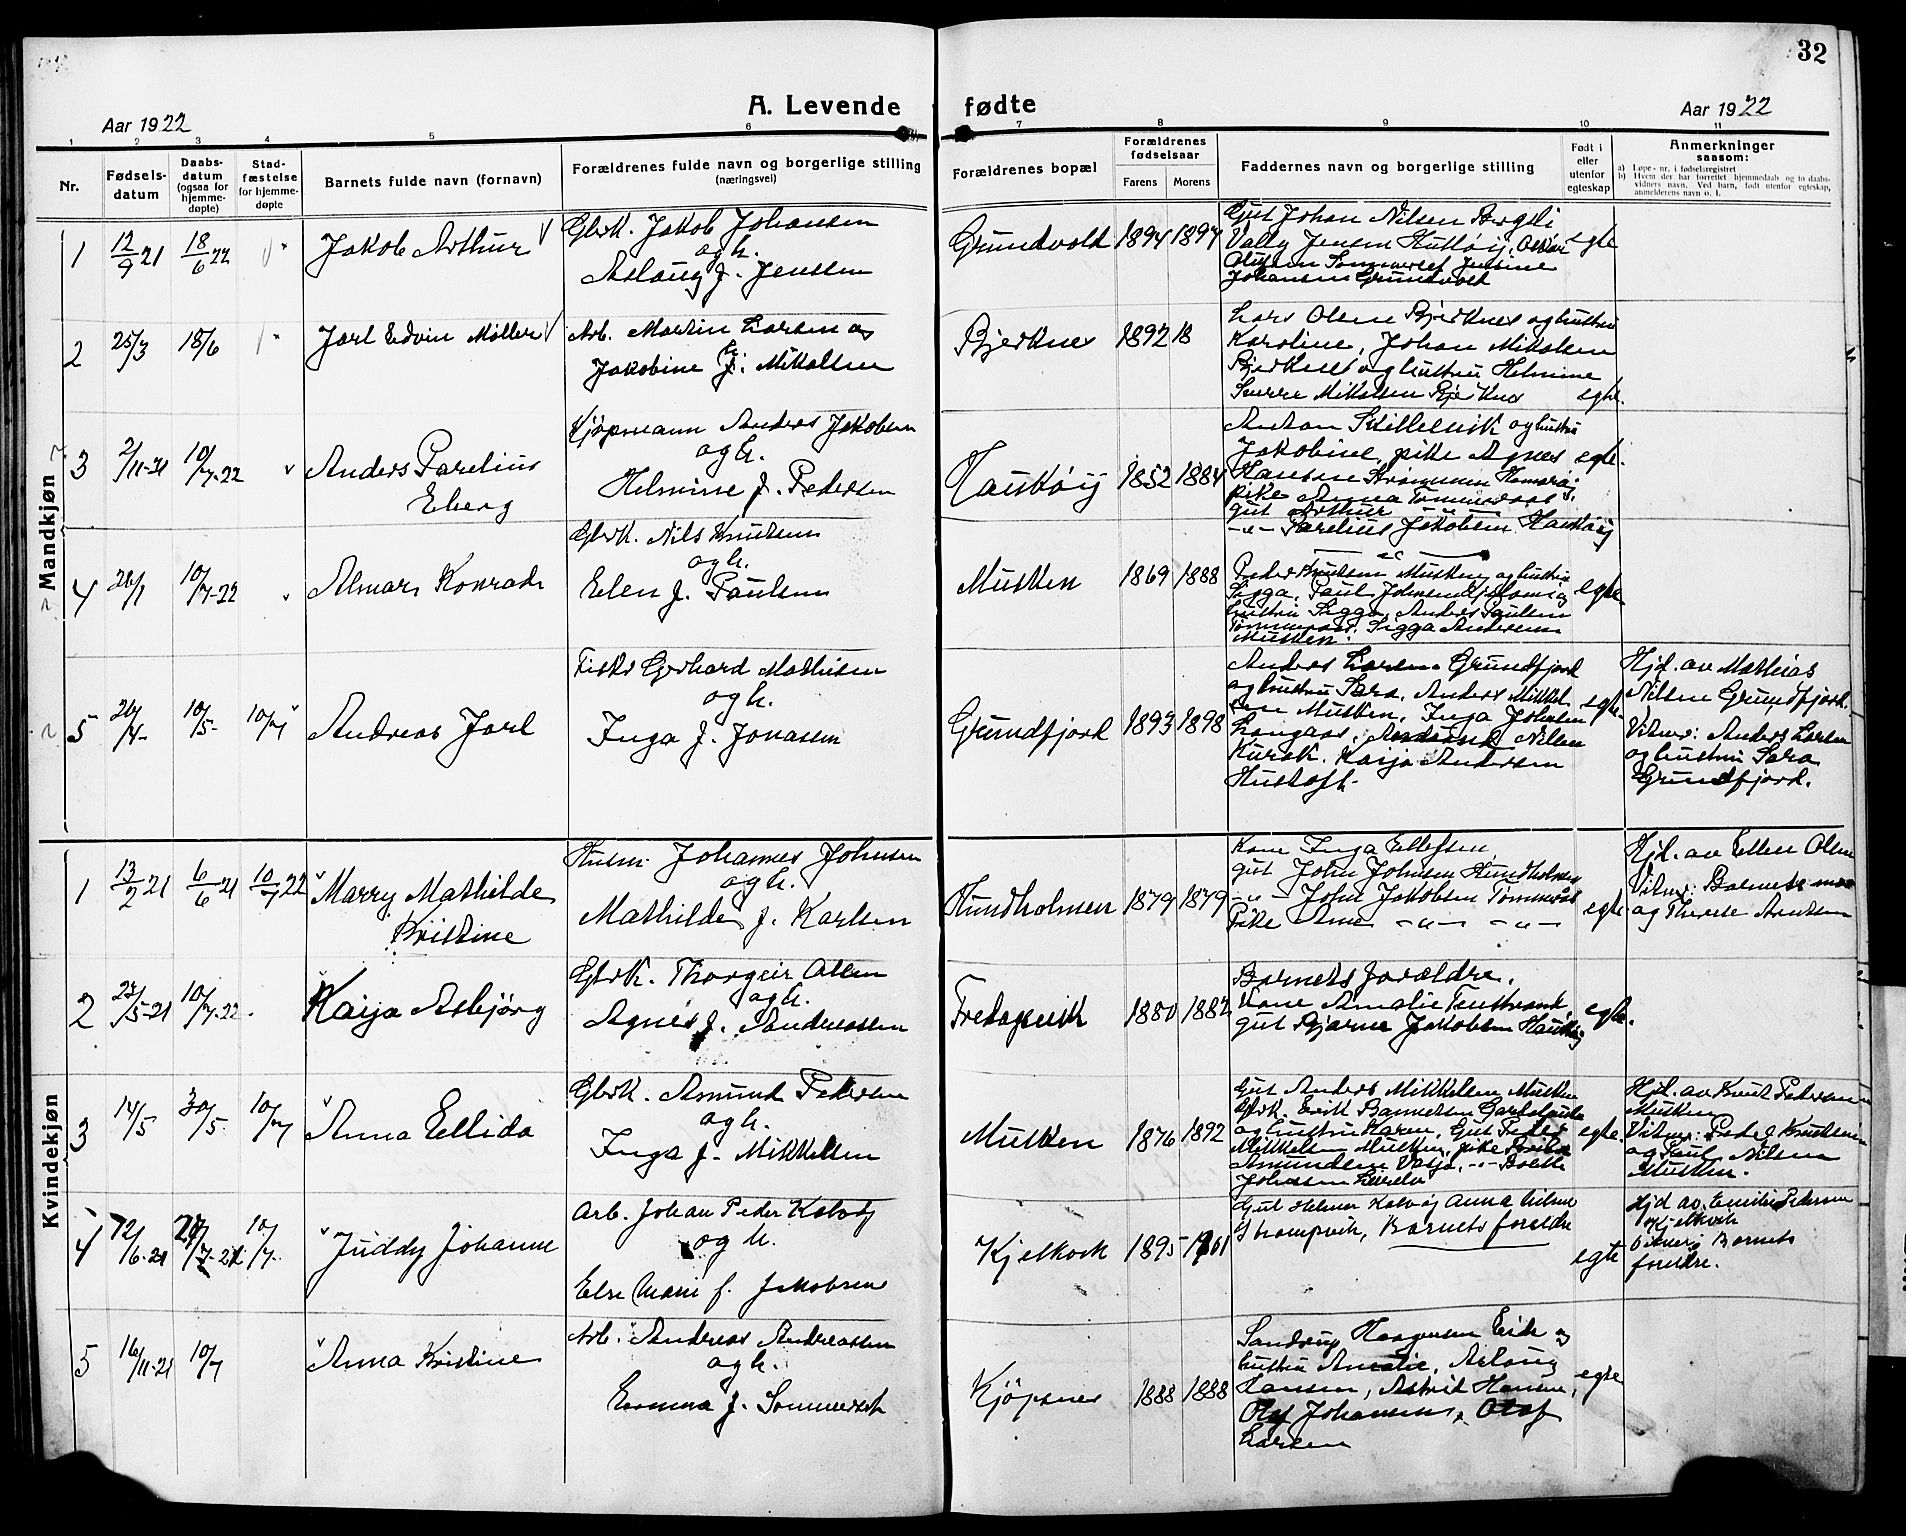 32
A. Levende fødte
Aar 1922
Aar 1922
1 2 3 4 5 6 7 8 9 10 11
Nr.
Fødsels-
datum
Daabs-
datum
(ogsaa for
hjemme-
døpte)
Stad-
fæstelse
for hjemme-
døpte
Barnets fulde navn (fornavn)
Forældrenes fulde navn og borgerlige stilling
(næringsvei)
Forældrenes bopæl
Forældrenes
fødselsaar
Farens
Morens
Faddernes navn og borgerlige stilling
Født i
eller
utenfor
egteskap
Anmerkninger
saasom:
a) Løpe-nr. i fødselsregistret
b) Hvem der har forrettet hjemmedaab og to daabs-
vidners navn. Ved barn, født utenfor egteskap,
anmelderens navn o. l.
Mandkjøn
1 12/9 21 18/6 22 Jakob Arthur
Gbrk. Jakob Johansen
og h.
Aslaug f. Jenssen
Grundvold 1894 1897
Gut Johan Nilsen Bergsli
Vally Jensen Hustøij, Oskar
Olufsen Sommerset Justine
Johansen Grundvold
egte
2 25/3 18/6 Jarl Edvin Møller
Arb. Martin Larsen og
h.
Jakobine f. Mikalsen
Bjerknes 1892 18
Lars Olsen Bjerknes og hustru
Karoline, Johan Mikalsen
Bjerknes og hustru Helmine
Sverre Mikalsen Bjerknes
egte.
3 2/11-21 10/7-22 Anders Parelius
Eberg
Kjøpmann Anders Jakobsen
og h.
Helmine f. Pedersen
Haukøij 1852 1884
Anton Skillevik og hustru
Jakobine, pike Agnes
Hansen Strømmen Hamarøj
pike Anna Tømmeraas
gut Arthur -"-
-"- Parelius Jakobsen Haukøij
egte.
4 26/1 10/7-22 Almar Konrad
Gbrk. Nils Knutsen
og h.
Elen f. Paulsen
Musken 1869 1888
Peder Knutsen Musken og hustru
Sigga, Paul Johnsen
hustru Sigga, Anders Paulsen
Tømmeraas, Sigga Andersen
Musken.
egte
5 26/4- 10/5- 10/7 Andreas Jarl
Fisker Gerhard Mathisen
og h.
Inga f. Jonassen
Grundfjord 1893 1898
Anders Larsen Grundfjord
og hustru Sara, Anders Mikkel
sen Musken, Inga Johnsen
Langaas, Nilsen
Kaija Andersen
egte.
Hjd. av Mathias
Nilsen Grundfjord.
Vitner: Anders Larsen
og hustru Sara
Grundfjord.
Kvindekjøn
1 13/2 21 6/6 21 10/7 22 Marry Mathilde
Kristine
Husm. Johannes Johnsen
og h.
Mathilde f. Karlsen
Hundholmen 1879 1879
Kone Inga Ellefsen
gut John Johnsen Hundholmen
-"- John Jakobsen Tømmerås
Pike Ane -"- -"-
egte
Hjd. av Ellen Olsen
Vitner: Barnets mor
og Therese Arntsen
2 27/5-21 10/7-22 Kaija Asbjörg
Gbrk. Thorgeir Olsen
og h.
Agnes f. Andreassen
Fredagsvik 1880 1882
Barnets forældre.
Kone Amalie
gut Bjarne Jakobsen Haukøij
egte.
3 14/5 30/5 10/7 Anna Ellida
Gbrk. Amund Pedersen
og h.
Inga f. Mikkelsen
Musken 1876 1892
Gut Anders Mikkelsen Musken
Gbrk. Erik
og hustru Karen, Gut Peder
Mikkelsen Musken, pike
Amundsen
Johansen
egte.
Hjd. av Knut Pedersen
Musken
Vitner: Peder Knutsen
og Paul Nilsen
Musken.
4 12/6-21 27/7-21 10/7- Juddy Johanne
Arb. Johan Peder Kalvåg
og h.
Else Marie f. Jakobsen
Kjelkvik 1895 1901
Gut Helmer Kalvåg Anna Nilsen
Strompvik, Barnets foreldre
egte
Hjd av Emilie Pedersen
Kjelkvik
Vitner: Barnets
foreldre.
5 16/11-21 10/7 Anna Kristine
Arb. Andreas Andreassen
og h.
Emma f. Sommerset
Kjöpsnes 1888 1888
Sandrup Haagensen Eide og
hustru Amalie, Aslaug
Hansen, Astrid Hansen,
Olaf Johansen, Olaf
Larsen
egte